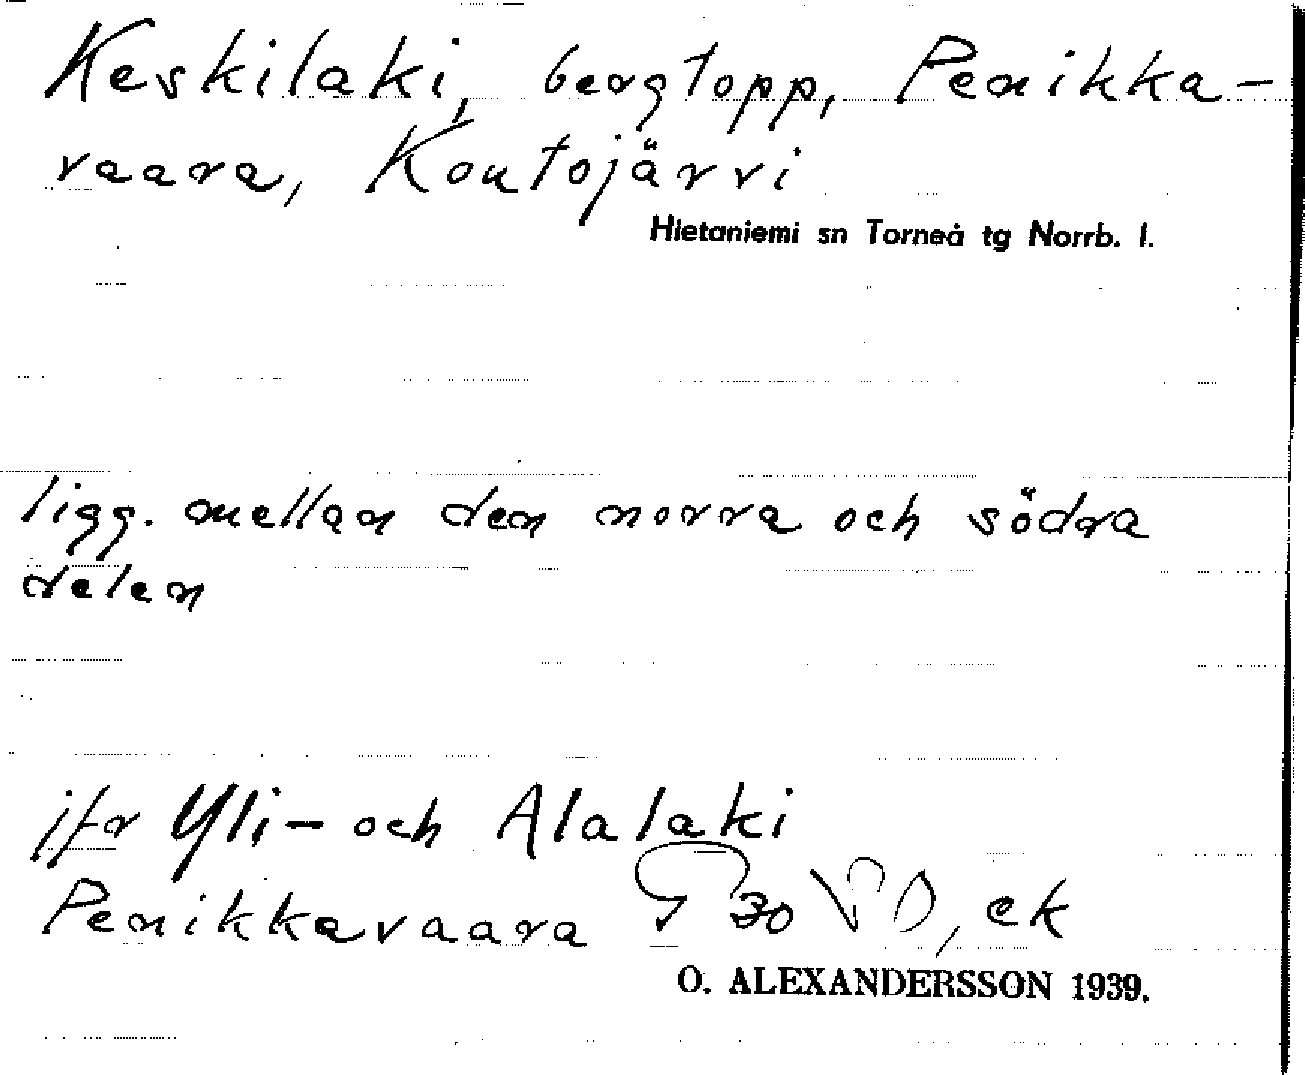 Keskilaki, bergtopp, Penikka-
vaara, Koutojärvi
Hietaniemi sn Torneå tg Norrb. l.
ligg. mellan den norra och södra
delen
jfr Yli- och Alalaki
Penikkavaara 30 , ek
O. ALEXANDERSSON 1939.